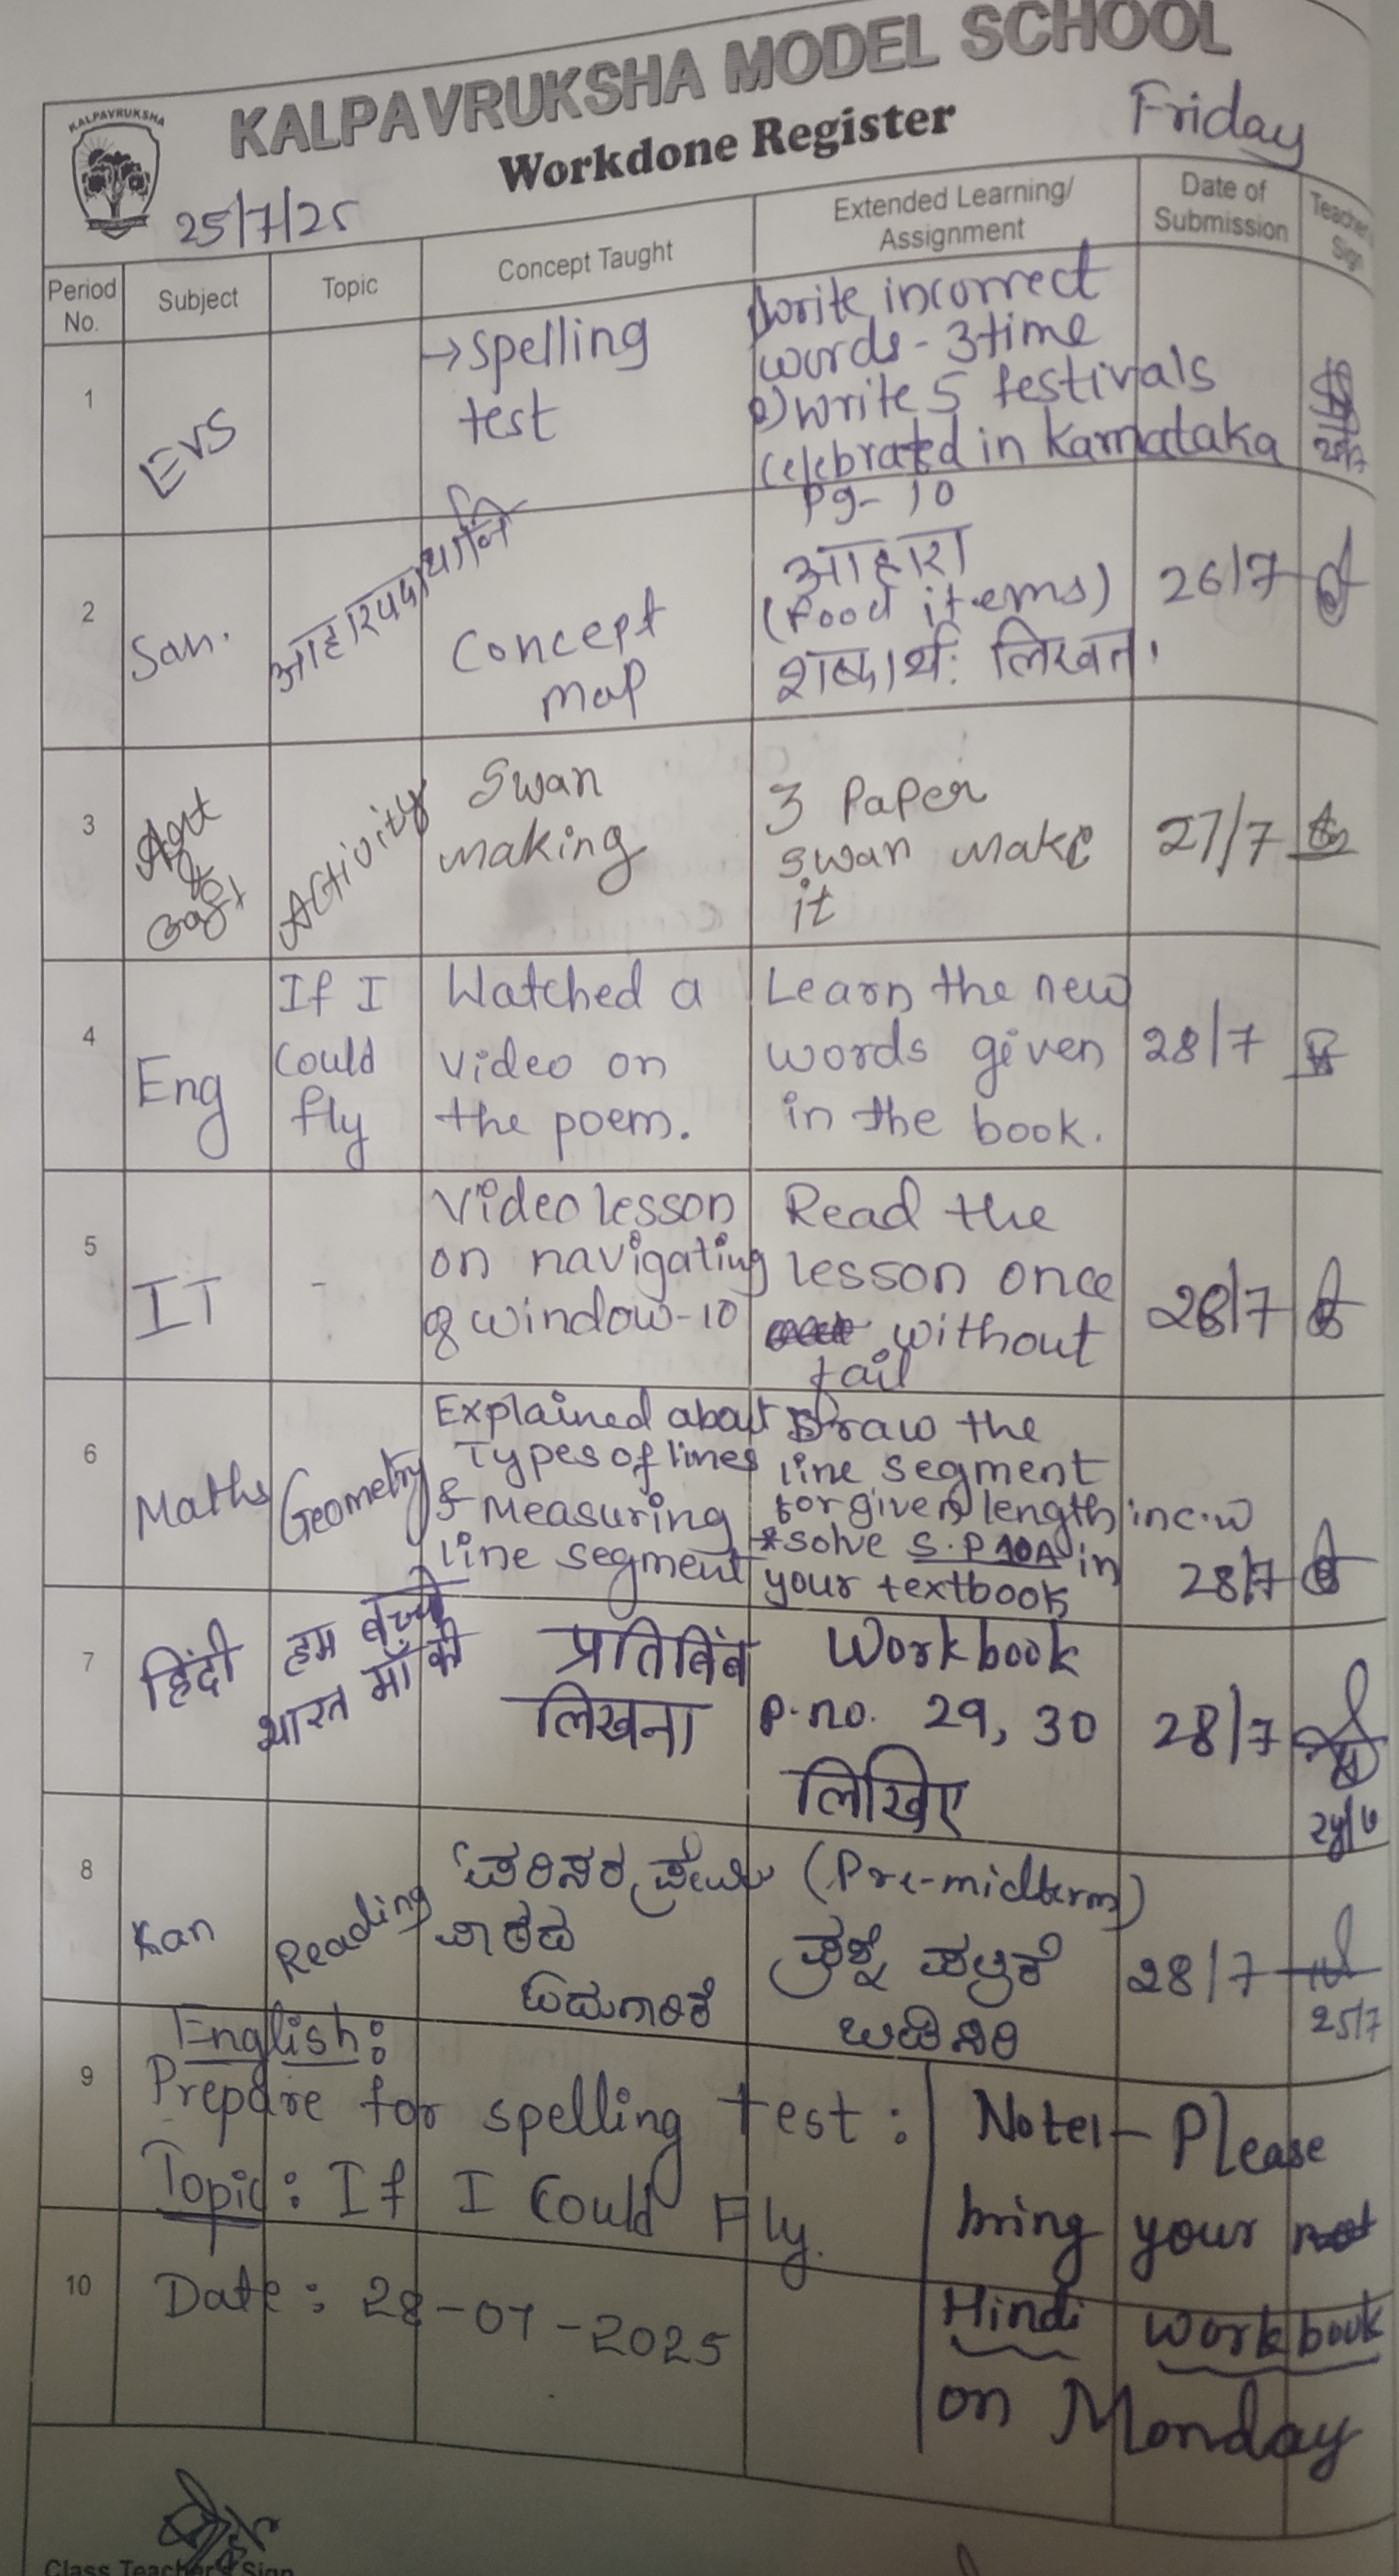 KALPAVRUKSHA MODEL SCHOOL
KALPAVRUKSHA
Workdone Register
Friday
25/7/25
Period No.
Subject
Topic
Concept Taught
Extended Learning/
Assignment
Date of
Submission
Teacher
Sign
1
EVS
→ Spelling
test
1) write incorrect
words - 3 time
2) write 5 festivals
celebrated in Karnataka
25/7
2
San.
आहारपदार्थानि
Concept
map
Pg- 10
आहारा
(Food items)
शब्दार्थ: लिखत।
26/7
3
Art
&
Craft
Activity
Swan
making
3 Paper
swan make
it
27/7
4
Eng
If I
Could
fly
Watched a
video on
the poem.
Learn the new
words given
in the book.
28/7
5
IT
-
Video lesson
on navigating
of window-10
Read the
lesson once
without
fail
28/7
6
Maths
Geometry
Explained about
Types of lines
& measuring
line segment
Draw the
line segment
for given length in c.w
*solve S.P 10A in
your textbook
28/7
7
हिंदी
हम बच्चे
भारत माँ के
प्रतिबिंब
लिखना
Workbook
P.no. 29, 30
लिखिए
28/7
8
Kan
Reading
ಪರಿಸರ ಪ್ರೇಮಿ
ಪಾಠದ
ಓದುಗಾರಿಕೆ
(Pre-midterm)
ಪ್ರಶ್ನೆ ಪತ್ರಿಕೆ
ಬಿಡಿಸಿರಿ
28/7
25/7
9
English:
Prepare for spelling test:
Topic: If I Could Fly.
10
Date: 28-07-2025
Note:- Please
bring your
Hindi workbook
on Monday
Class Teacher's Sign